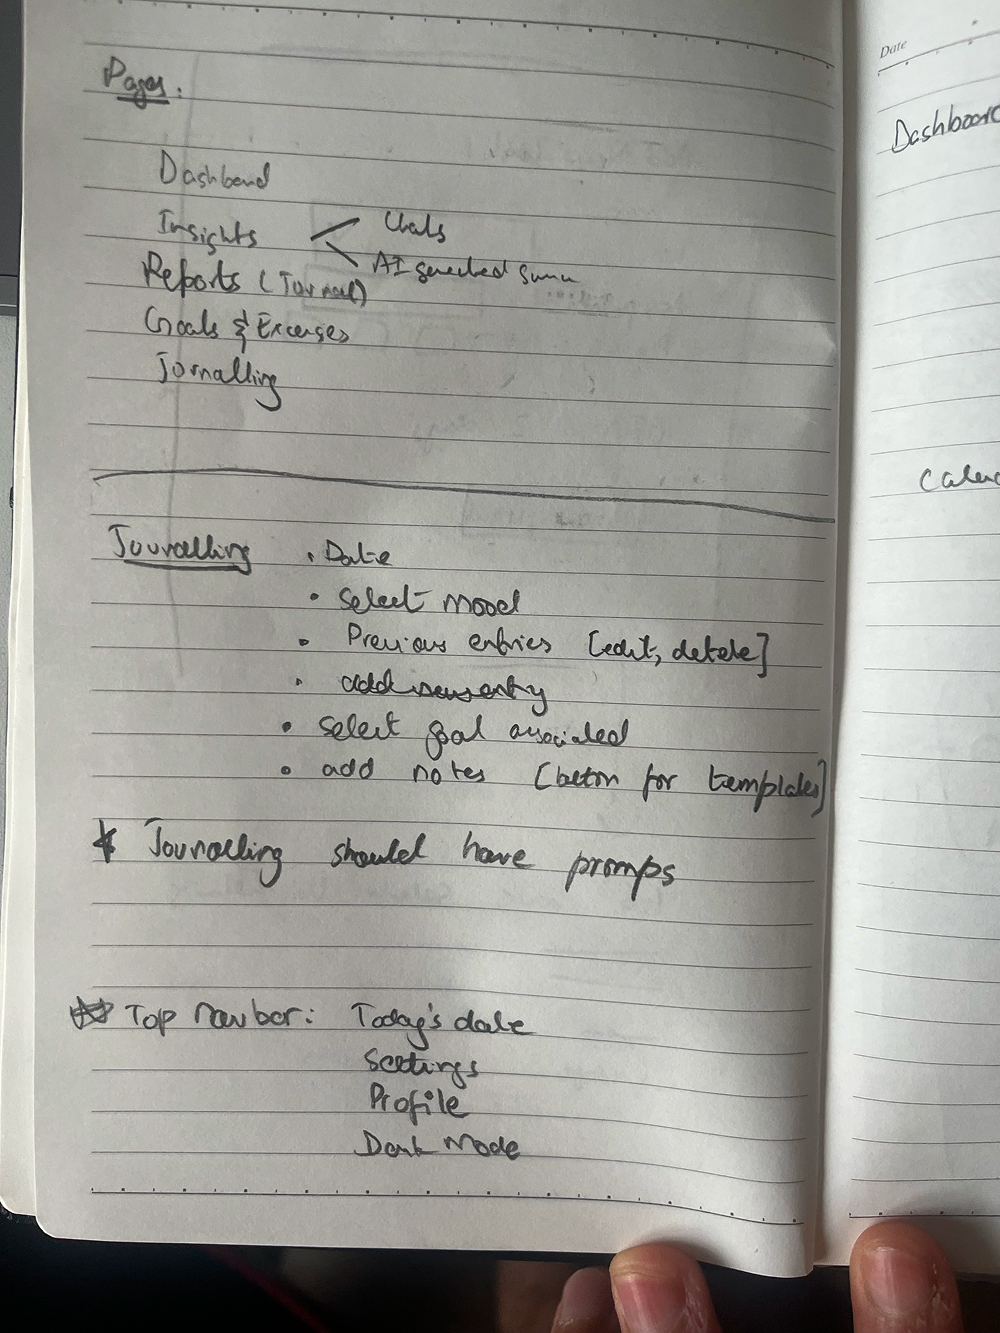 Pages.
Dashboard
Insights
AI
Reports (Journal)
Goals &
Jornalling
Journalling
• Date
• Select mood
• Previous entries [edit, delete]
• add new entry
• select goal associated
• add notes [button for templates]
* Journalling should have promps
Top navbar: Today's date
Settings
Profile
Dark Mode
Date
Dashboard